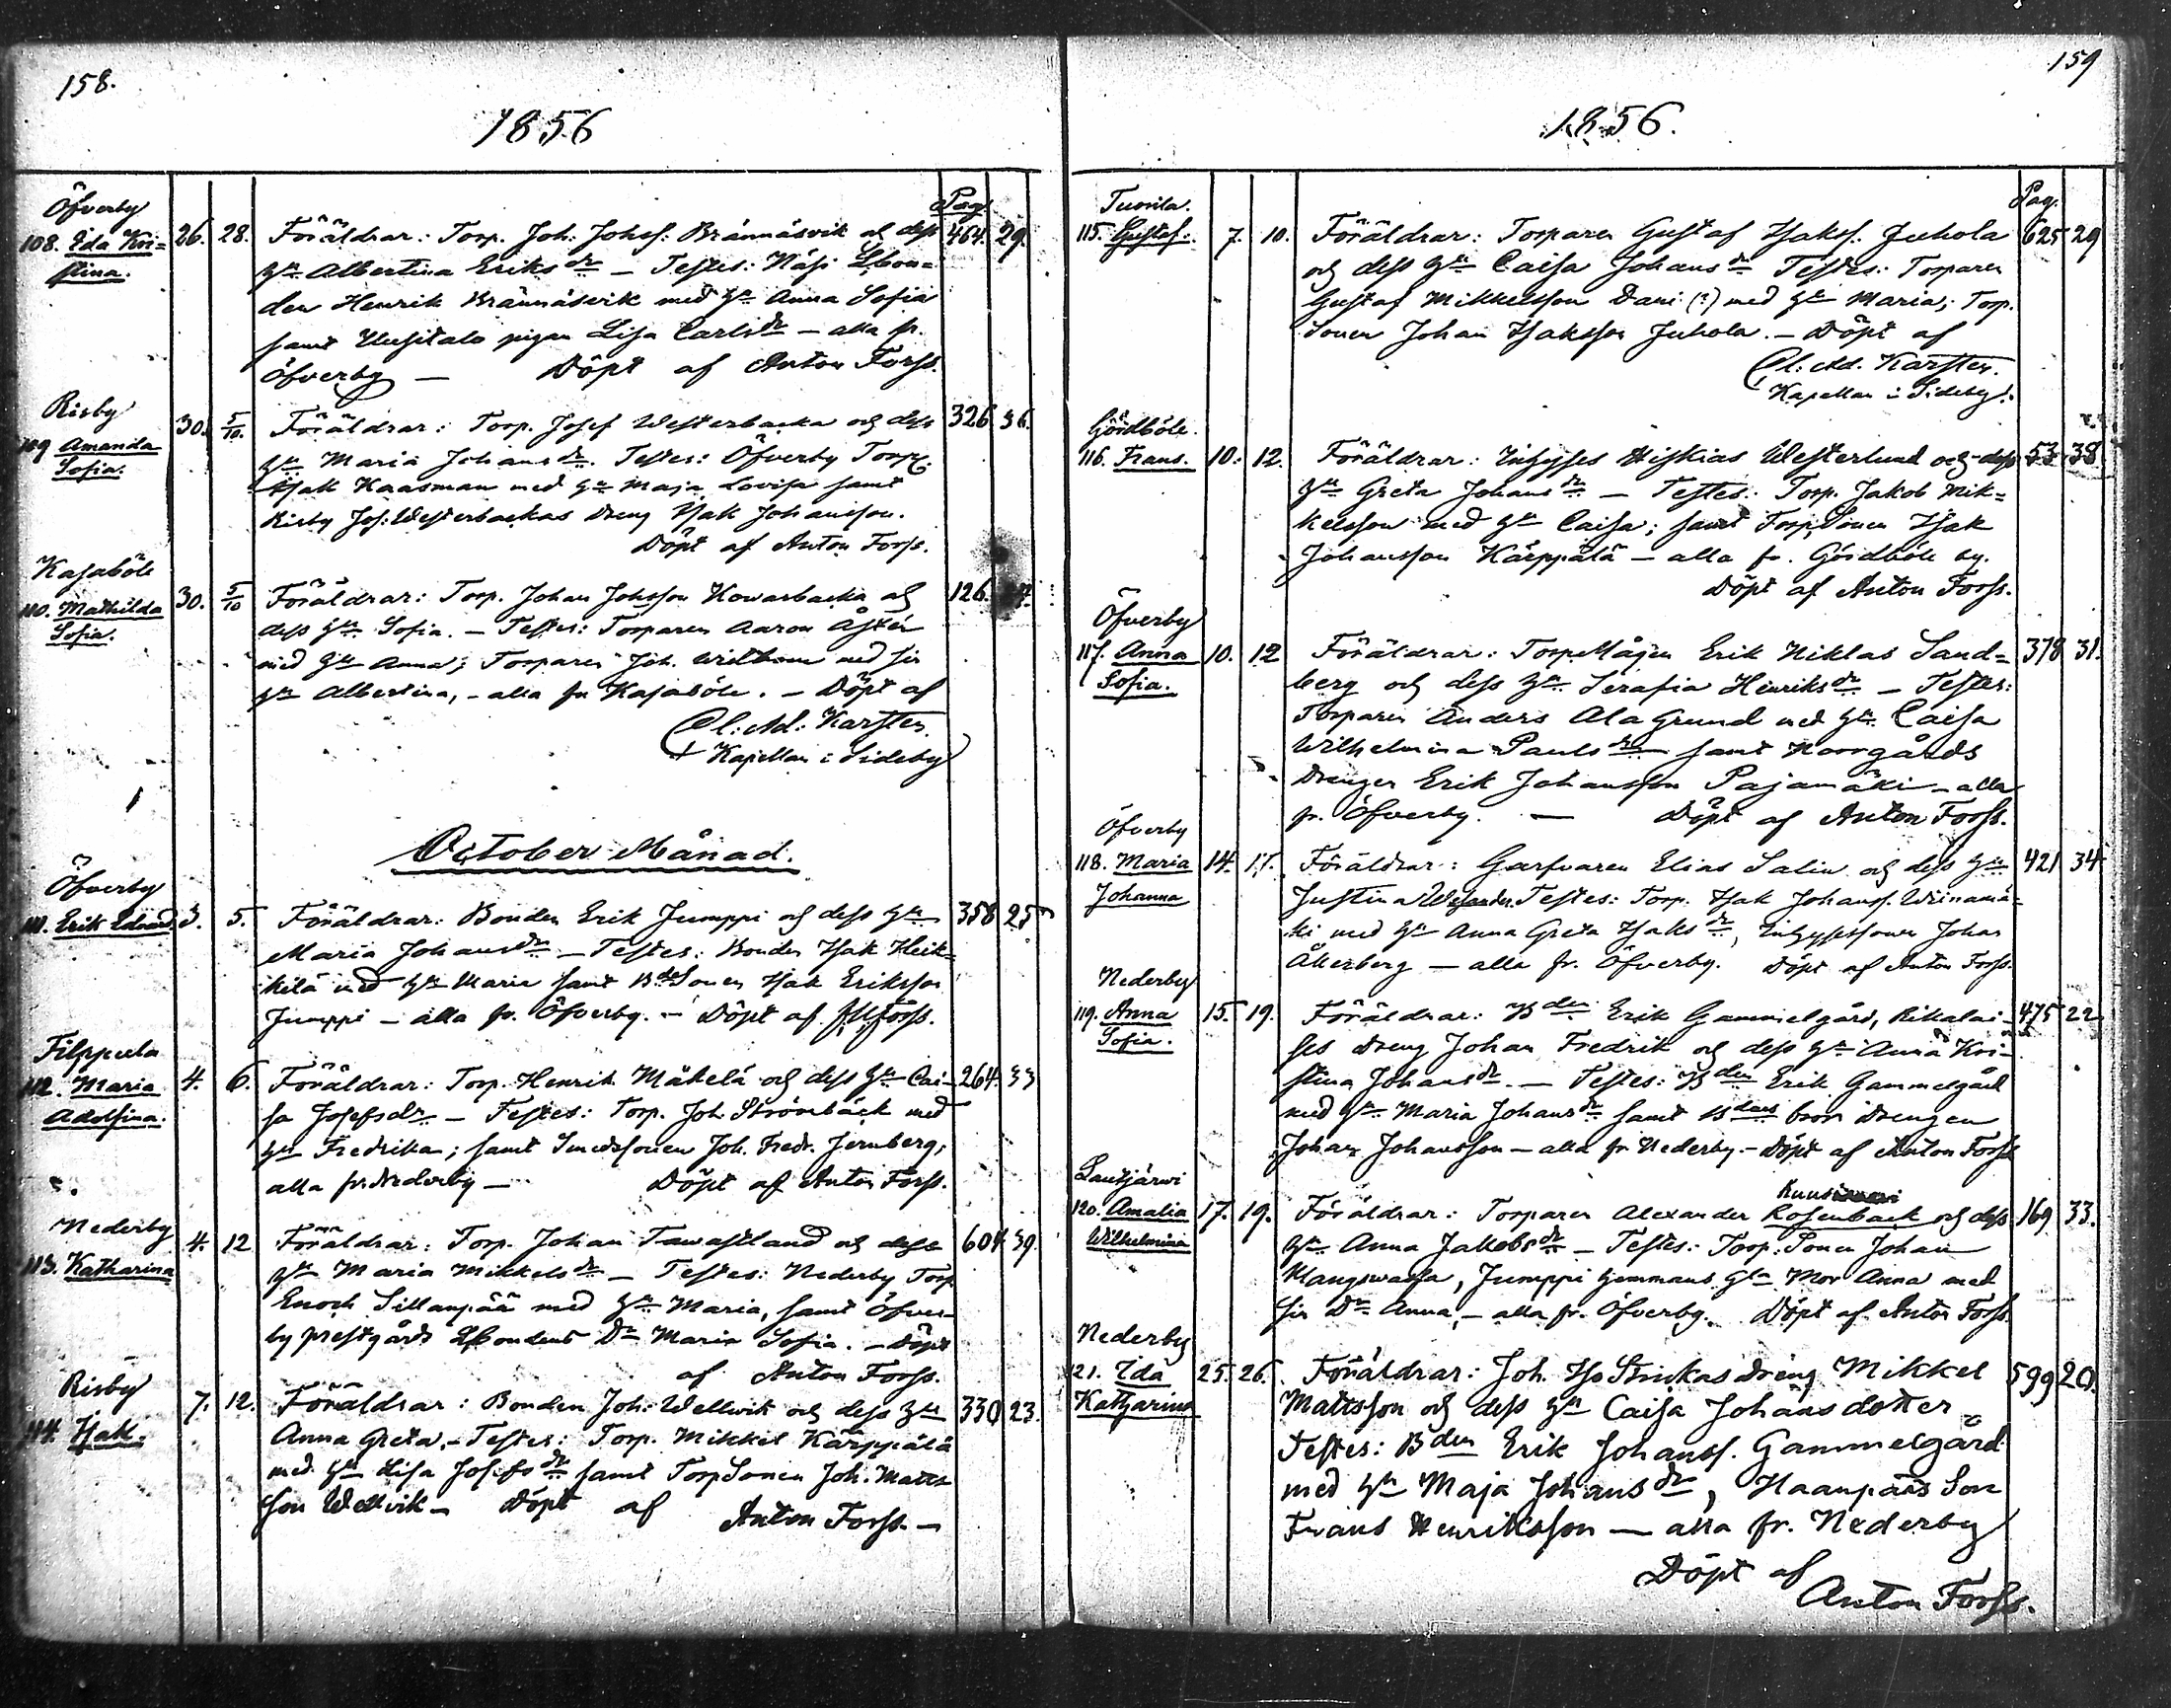 158.
1856
Pag.
Öfverby
108. Ida Kri=
stina.
26. 28. Föräldrar: Torp. Joh. Johsf. Brännäsvik och dess 464. 29.
Hu Albertina Eriksdr — Testes: Näsi Lbon=
den Henrik Brännäsvik med Hu Anna Sofia
samt Uusitalo pigan Lisa Carlsdr — alla fr.
Öfverby — Döpt af Anton Forss.
Risby
109 Amanda
Sofia.
30. 5/10. Föräldrar: Torp. Josef Westerbacka och dess 326 36.
Hu Maria Johansdr. Testes: Öfverby Torp.
Isak Haasman med Hu Maja Lovisa samt
Risby Jos: Westerbackas dreng Isak Johansson.
Döpt af Anton Forss.
Kasaböle
110. Mathilda
Sofia.
30. 5/10 Föräldrar: Torp. Johan Johsson Kowarbacka och 126.
dess Hu Sofia. — Testes: Torparen Aaron Åstén
med Hu Anna; Torparen Joh. Widbom med sin
Hu Albertina, - alla fr Kasaböle. — Döpt af
Cl: Ad: Karsten.
Kapellan i Sideby
October Månad.
Öfverby
111. Erik Eduard
3. 5. Föräldrar: Bonden Erik Jumppi och dess Hu 358 25
Maria Johansdr — Testes: Bonden Isak Heik=
kilä med Hu Maria samt Bdesonen Isak Eriksson
Jumppi — alla fr. Öfverby. — Döpt af Forss.
Filppula
112. Maria
Adolfina.
4. 6. Föräldrar: Torp. Henrik Mäkelä och dess Hu Cai- 264. 33
sa Josefsdr — Testes: Torp. Joh. Strömbäck med
Hu Fredrika; samt Smedssonen Joh. Fredr. Jernberg,
alla fr. Nederby — Döpt af Anton Forss.
Nederby
113. Katharina
4. 12 Föräldrar: Torp. Johan Tawastland och dess 604 39.
Hu Maria Mikkelsdr — Testes: Nederby Torp
Enoch Sillanpää med Hu Maria, samt Öfver-
by prestgårds Lbondens Dr Maria Sofia. — Döpt
af Anton Forss.
Risby
114. Isak.
7. 12. Föräldrar: Bonden Joh. Wellvik och dess Hu 330 23.
Anna Greta, - Testes: Torp. Mikkel Kärppälä
med Hu Lisa Josefsdr samt TorpSonen Joh. Matts-
son Wellvik — Döpt af Anton Forss. —
159
1856.
Pag.
Tuorila.
115. Gustaf.
7. 10. Föräldrar: Torparen Gustaf Isaksf. Juhola 625 29
och dess Hu Caisa Johansdr Testes: Torparen
Gustaf Mikkelsson Dani (?) med Hu Maria; Torp.
Sonen Johan Isaksson Juhola. — Döpt af
Cl: Ad. Karsten.
Kapellan i Sideby.
Gördböle.
116. Frans.
10. 12. Föräldrar: Inhyses Hiskias Westerlund och dess 53 38
Hu Greta Johansdr — Testes: Torp. Jakob Mik=
kelsson med Hu Caisa; samt Torp.Sonen Isak
Johansson Kärppälä — alla fr. Gördböle by.
Döpt af Anton Forss.
Öfverby
117. Anna
Sofia.
10. 12 Föräldrar: TorpeMågen Erik Niklas Sand= 378 31.
berg och dess Hu Serafia Henriksdr — Testes:
Torparen Anders Ala Grund med Hu Caisa
Wilhelmina Paulsdr samt Norrgårds
Drengen Erik Johansson Pajamäki — alla
fr. Öfverby. — Döpt af Anton Forss.
Öfverby
118. Maria
Johanna
14. 17. Föräldrar: Garfvaren Elias Salin och dess Hu 421 34
Justina Testes: Torp. Isak Johansf. Weinamä-
ki med Hu Anna Greta Isaksdr, Inhysessonen Johan
Åkerberg — alla fr. Öfverby. Döpt af Anton Forss.
Nederby
119. Anna
Sofia.
15. 19. Föräldrar: Bden Erik Gammelgård, Rikalai- 475 22
ses Dreng Johan Fredrik och dess Hu Anna Kri-
stina Johansdr. — Testes: Bden Erik Gammelgård
med Hu Maria Johansdr samt Bdens bror Drengen
Johan Johansson — alla fr Nederby — Döpt af Anton Forss
Lautjärwi
120. Amalia
Wilhelmina
Kuus
17. 19. Föräldrar: Torparen Alexander Rosenback och dess 169 33.
Hu Anna Jakobsdr — Testes: Torp: Sonen Johan
Mangswassa, Jumppi hemmans Gla Mor Anna med
sin Dr Anna, — alla fr. Öfverby. Döpt af Anton Forss.
Nederby
121. Ida
Katharina
25. 26. Föräldrar: Joh. Is. Strickas dreng Mikkel 599 20.
Mattsson och dess Hu Caisa Johansdotter
Testes: Bden Erik Johansf. Gammelgård
med Hu Maja Johansdr, Haanpääs Son
Frans Henriksson — alla fr. Nederby
Döpt af
Anton Forss.